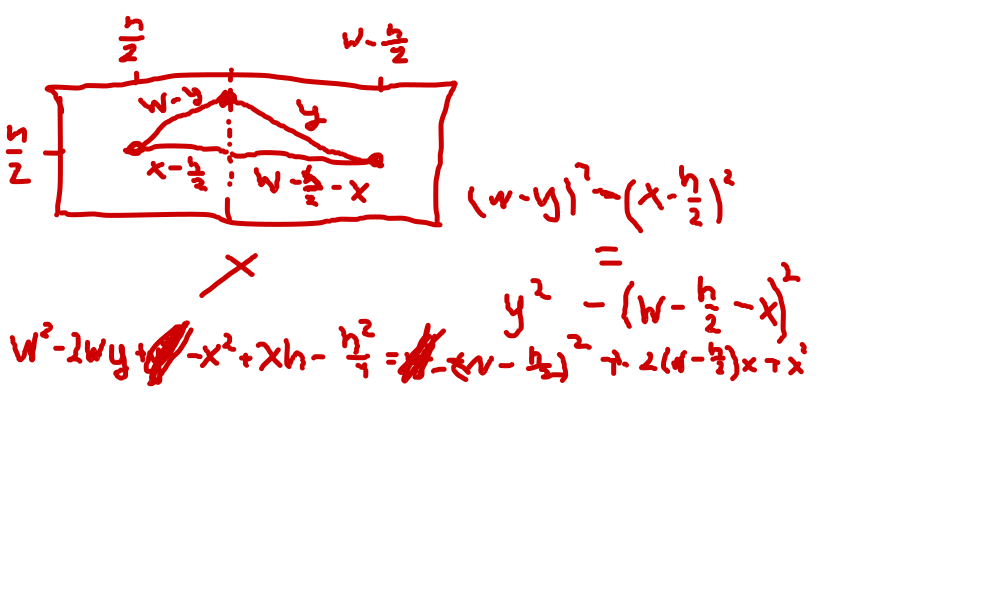 h/2
w - h/2
h/2
w - y
y
x - h/2
w - h/2 - x
x
(w - y)² - (x - h/2)²
=
y² - (w - h/2 - x)²
w² - 2wy + - x² + xh - h²/4 = - (w - h/2)² + 2(w - h/2)x + x²